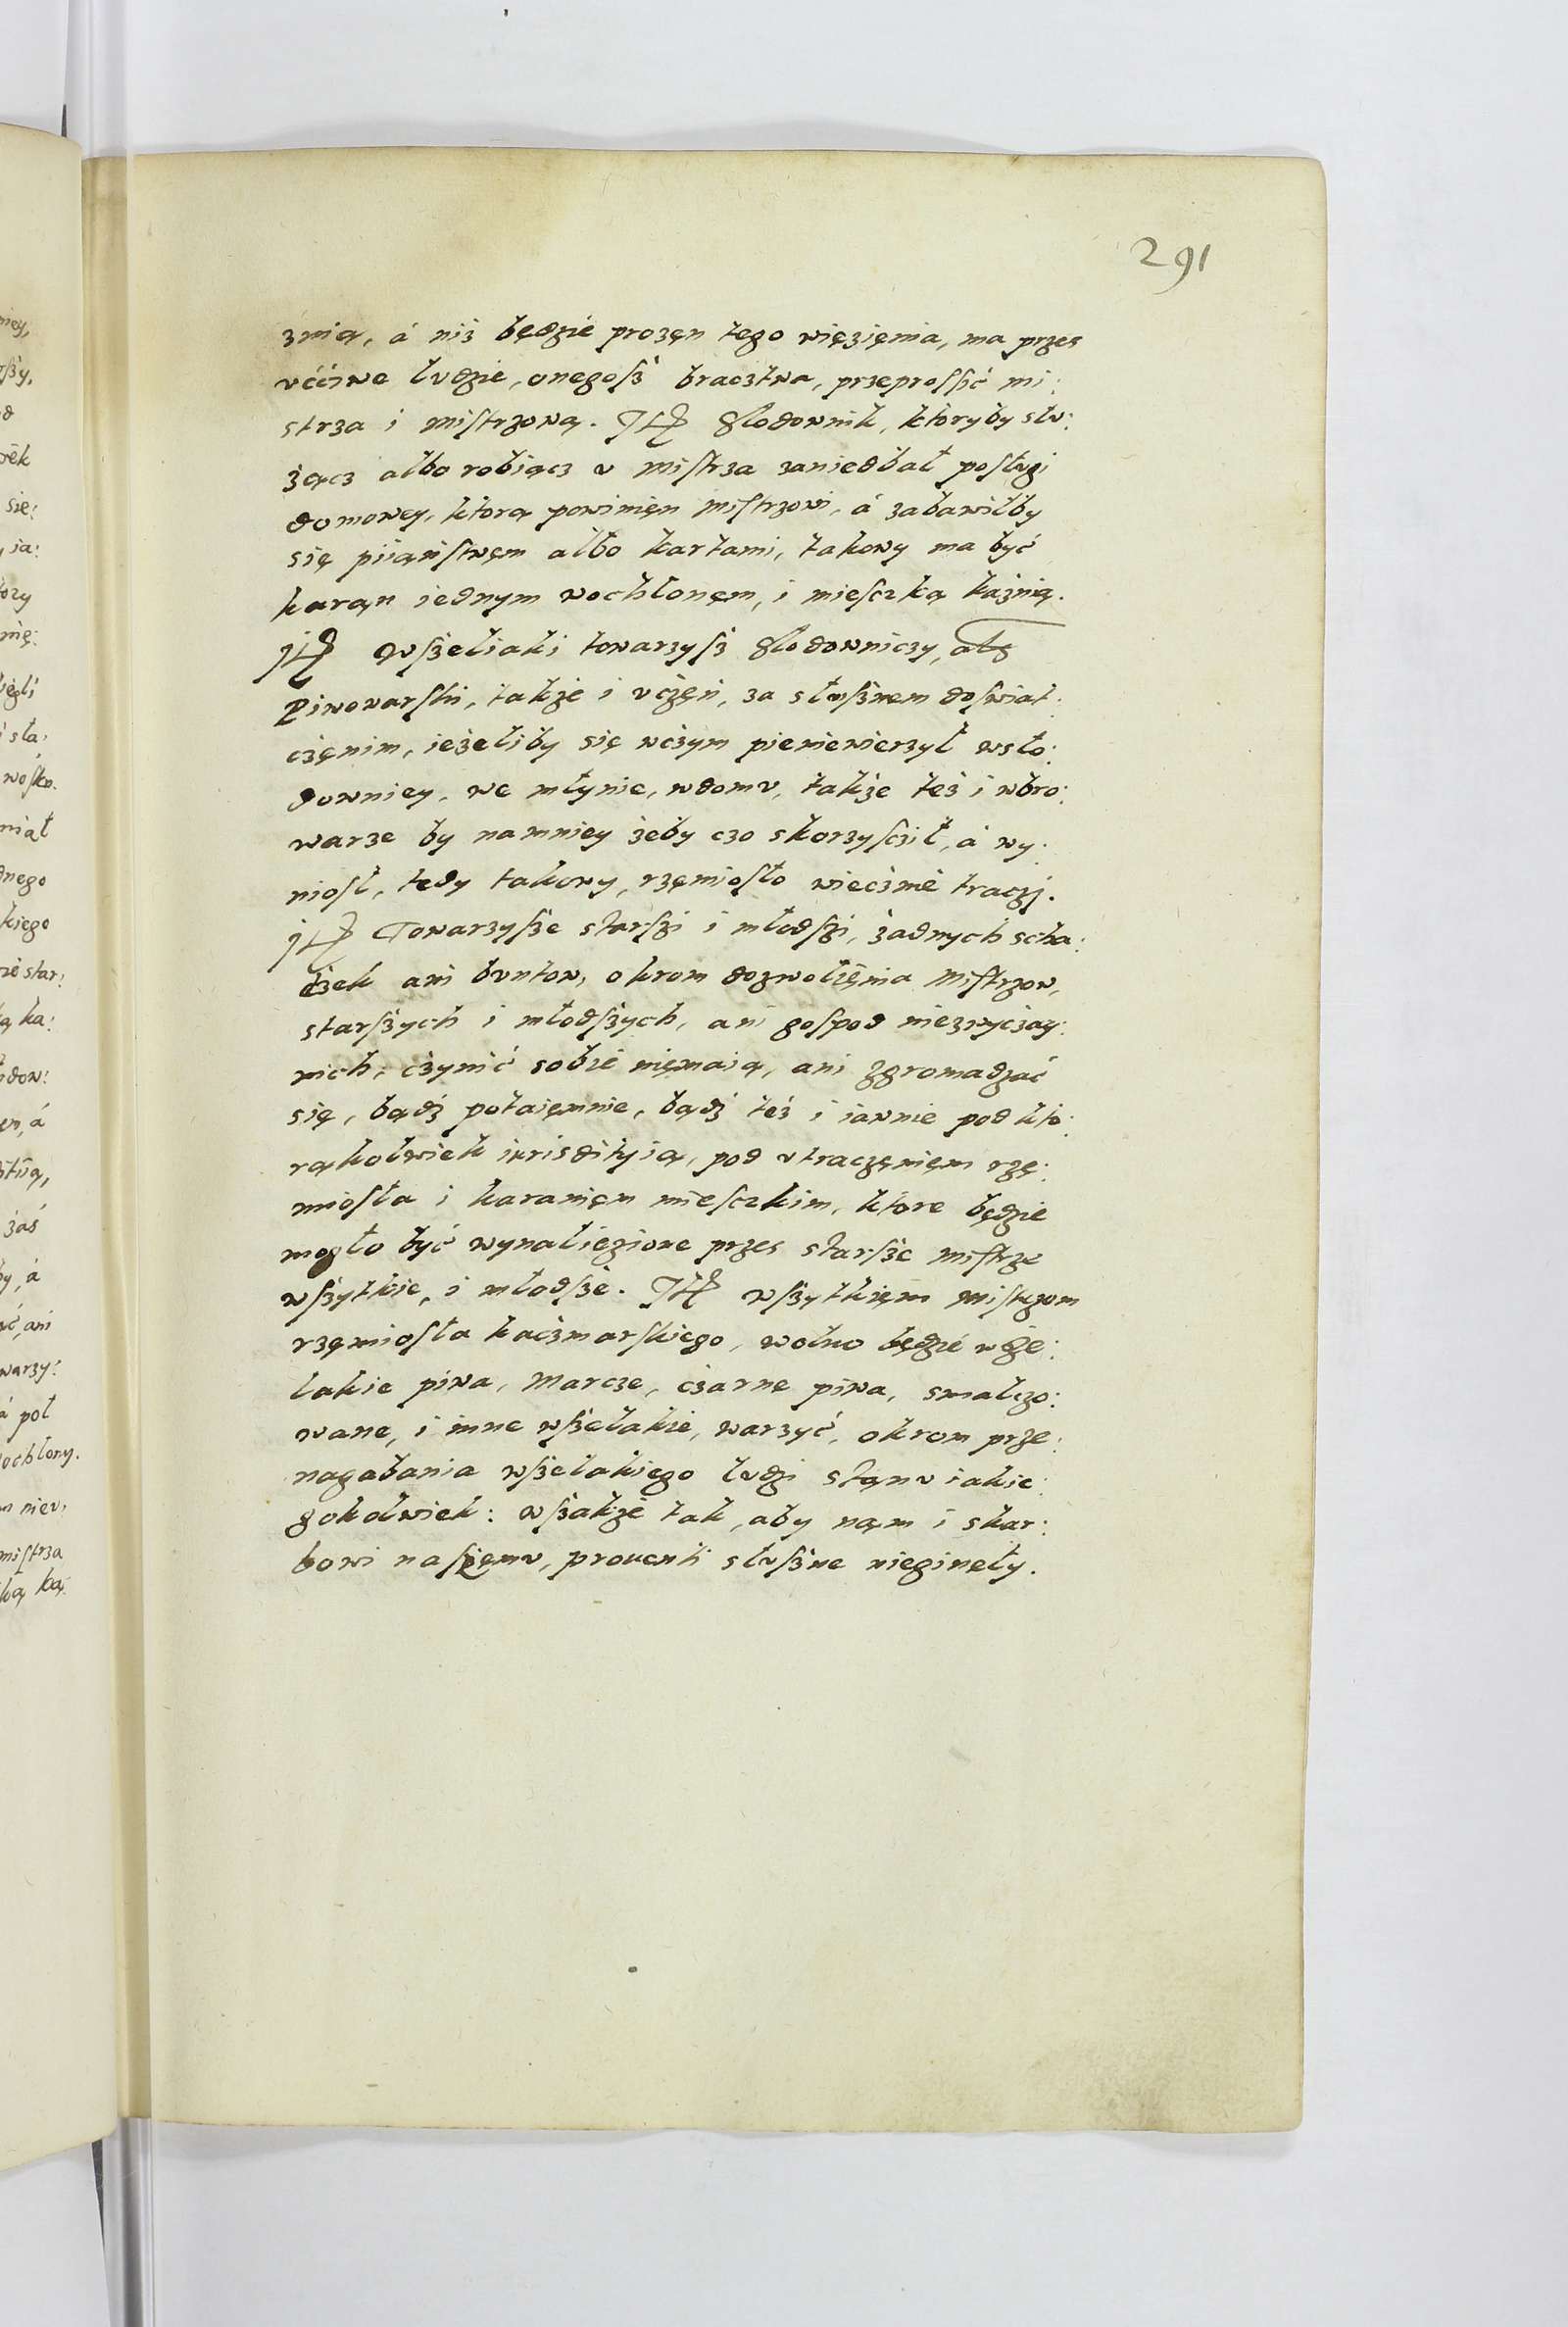 291
znią, á niż będzie prozęn tego więzięnia, ma przes
vććiwe ludzie, onegoſż bracztwa, przeproſſić mi:
strza i miſtrzową. Itẽ Slodownik, ktoryby słu:
żącz albo robiącz v miſtrza zaniedbał posługi
domowey, ktorą powinięn miſtrzowi, á zabawiłby
się piiąńſtwęm albo kartami, takowy ma być
karąn iednym wochlonęm, i mieſczką kaźnią.
Itẽ Wſżeliaki towarzyſż slodowniczy, albo
Piwowarſki, także i vczęń, za słuſżnem doſwiat:
cżęnim, ieżeliby się wcżym pieniewierzył wsło:
downiey, we młynie, wdomu, także też i wbro:
warze by namniey żeby czo skorzyſcził, á wy:
nioſł, tedy takowy, rzęmioſło wiecżnie traczj.
Itẽ Towarzyſże starſzi i młodſzi, żadnych scha:
dżek ani buntow, okrom dozwolięnia miſtrzow,
starſżych i młodſżych, ani goſpod niezwycżay:
nich, cżynić sobie nięmaią, ani zgromadzać
się, bądź potaięmnie, bądź też i iawnie pod kto:
rąkolwiek iurisditią, pod vtraczęnięm rzę:
mioſła i karanięm mieſczkim, ktore będzie
mogło być wynaliezione przes starſże miſtrze
wſżytkie, i młodſże. Itẽ wſżytkięm miſtrzom
rzęmioſła kacżmarſkiego, wolno będzie wſże:
lakie piwa, marcze, cżarne piwa, smalczo:
wane, i inne wſżelakie, warzyć, okrom prze:
nagabania wſżelakiego ludzi stąnu iakie:
gokolwiek: wſżakże tak, aby nąm i skar:
bowi naſzęmu, prouenti sluſżne nieginęły.